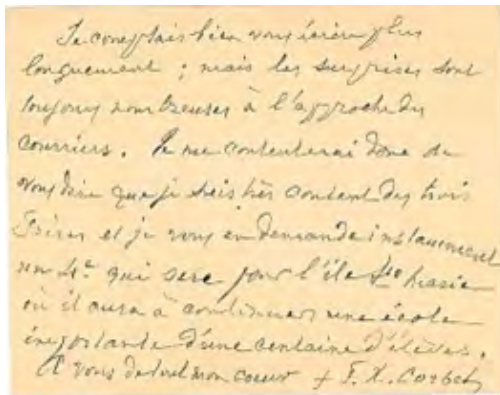 Je comptais bien vous écrire plus
longuement ; mais les surprises sont
toujours nombreuses à l'approche des
courriers. Je me contenterai donc de
vous dire que je suis très content des trois
Frères et je vous en demande instamment
un 4e qui sera pour l'île Ste Marie
où il aura à continuer une école
importante d'une centaine d'élèves.
A vous de tout mon coeur + F. X. Corbet